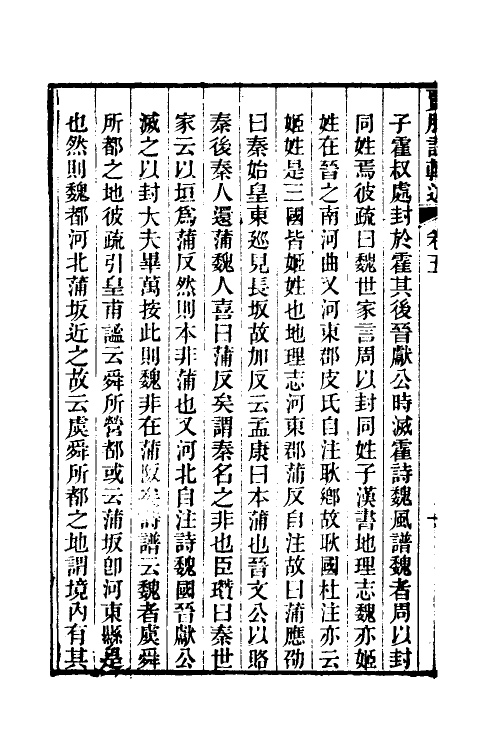 子霍叔處封於霍其後晉獻公時滅霍詩魏風譜魏者周以封
同姓焉彼疏曰魏世家言周以封同姓子漢書地理志魏亦姬
姓在晉之南河曲又河東郡皮氏自注耿鄉故耿國杜注亦云
姬姓是三國皆姬姓也地理志河東郡蒲反自注故曰蒲應劭
曰秦始皇東巡見長坂故加反云孟康曰本蒲也晉文公以賂
秦後秦人還蒲魏人喜曰蒲反矣謂秦名之非也臣瓚曰秦世
家云以垣爲蒲反然則本非蒲也又河北自注詩魏國晉獻公
滅之以封大夫畢萬按此則魏非在蒲阪矣詩譜云魏者虞舜
所都之地彼疏引皇甫謐云舜所營都或云蒲坂卽河東縣是
也然則魏都河北蒲坂近之故云虞舜所都之地謂境內有其
卷五